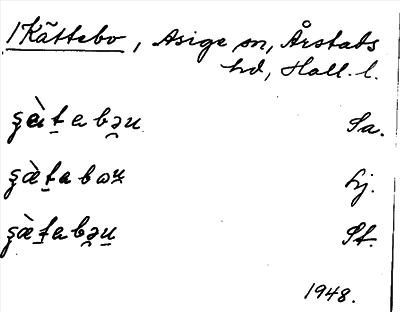 1 Kättebo, Asige sn, Årstads
hd, Hall. l.
ʂàt̲a bə̯u Sa.
ʂæ̀t̲a bωu̯ Lj.
ʂæ̀t̲a bə̯u̲ St.
1948.